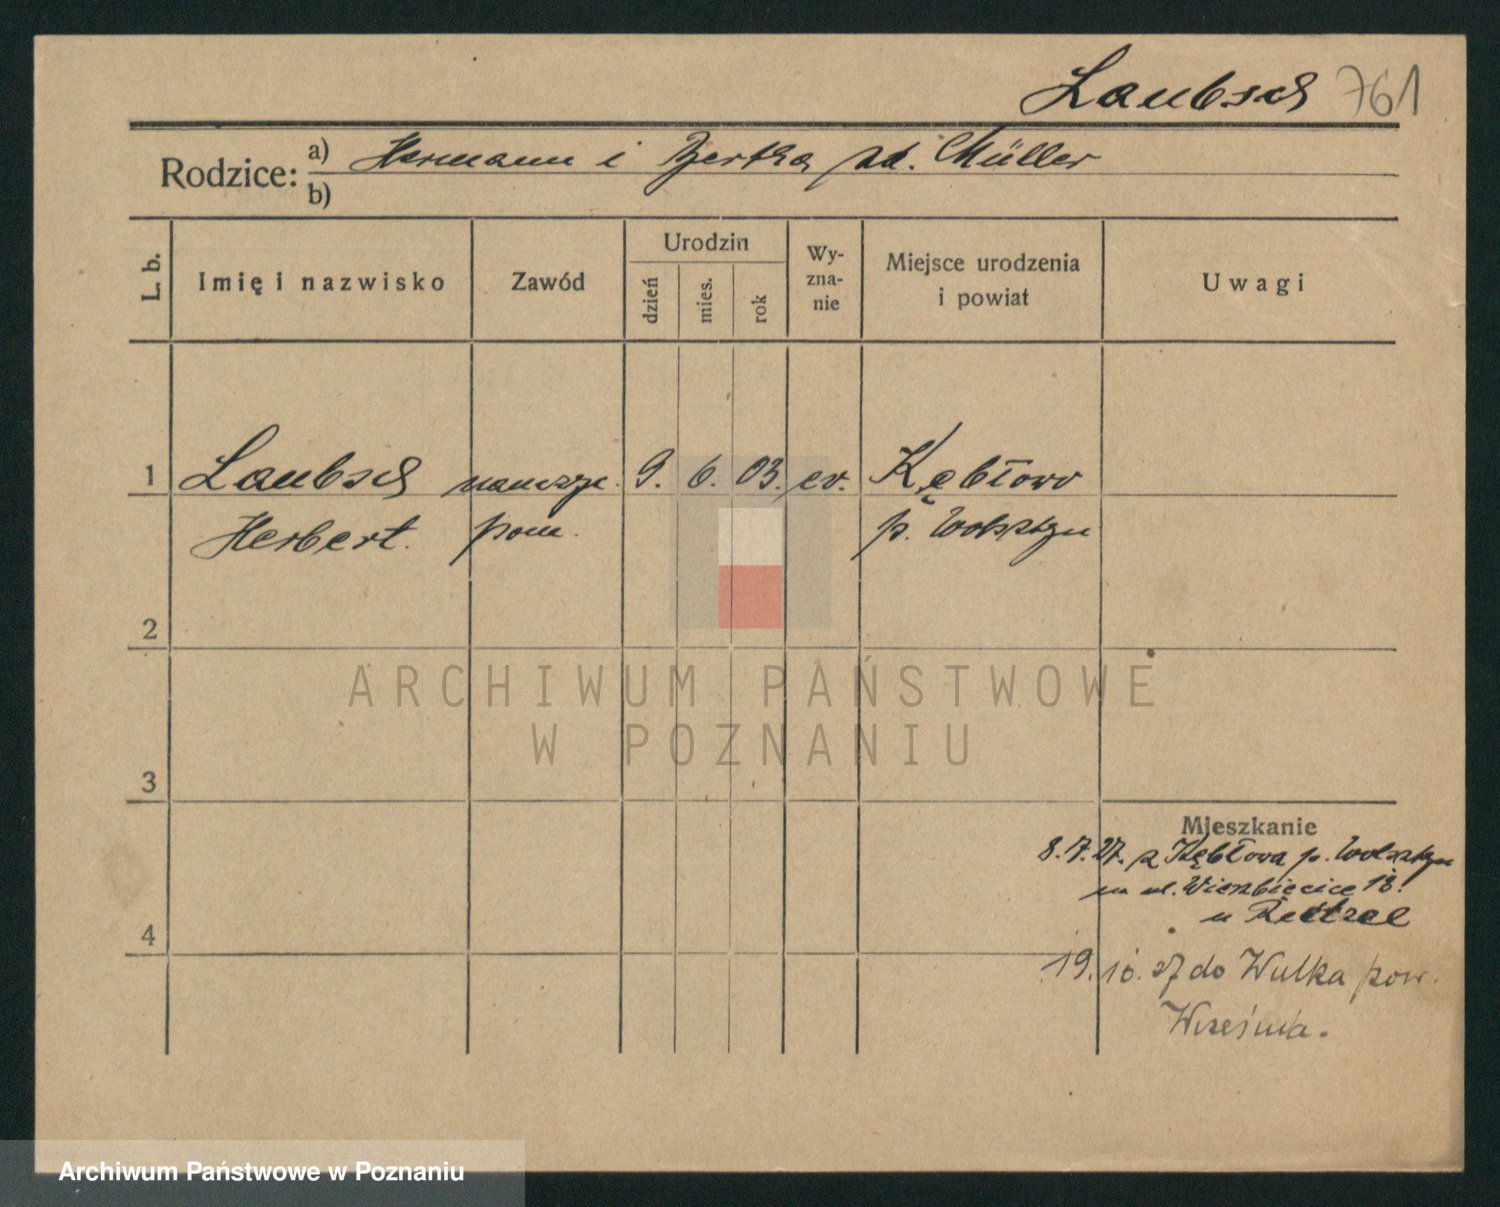 Laubsch 761
Rodzice: a) Hermann i Bertha zd. Müller
b)
L. b. Imię i nazwisko Zawód Urodzin dzień mies. rok Wy-zna-nie Miejsce urodzenia i powiat Uwagi
1 Laubsch naucz. 9. 6. 03. ev. Kębłowo
Herbert. pom. p. Wolsztyn
2
ARCHIWUM PAŃSTWOWE
W POZNANIU
3
Mieszkanie
8.7.27. z Kębłowa p. Wolsztyn
na ul. Wierzbięcice 18.
u
4
19.10.27 do Wulka pow.
Września.
Archiwum Państwowe w Poznaniu